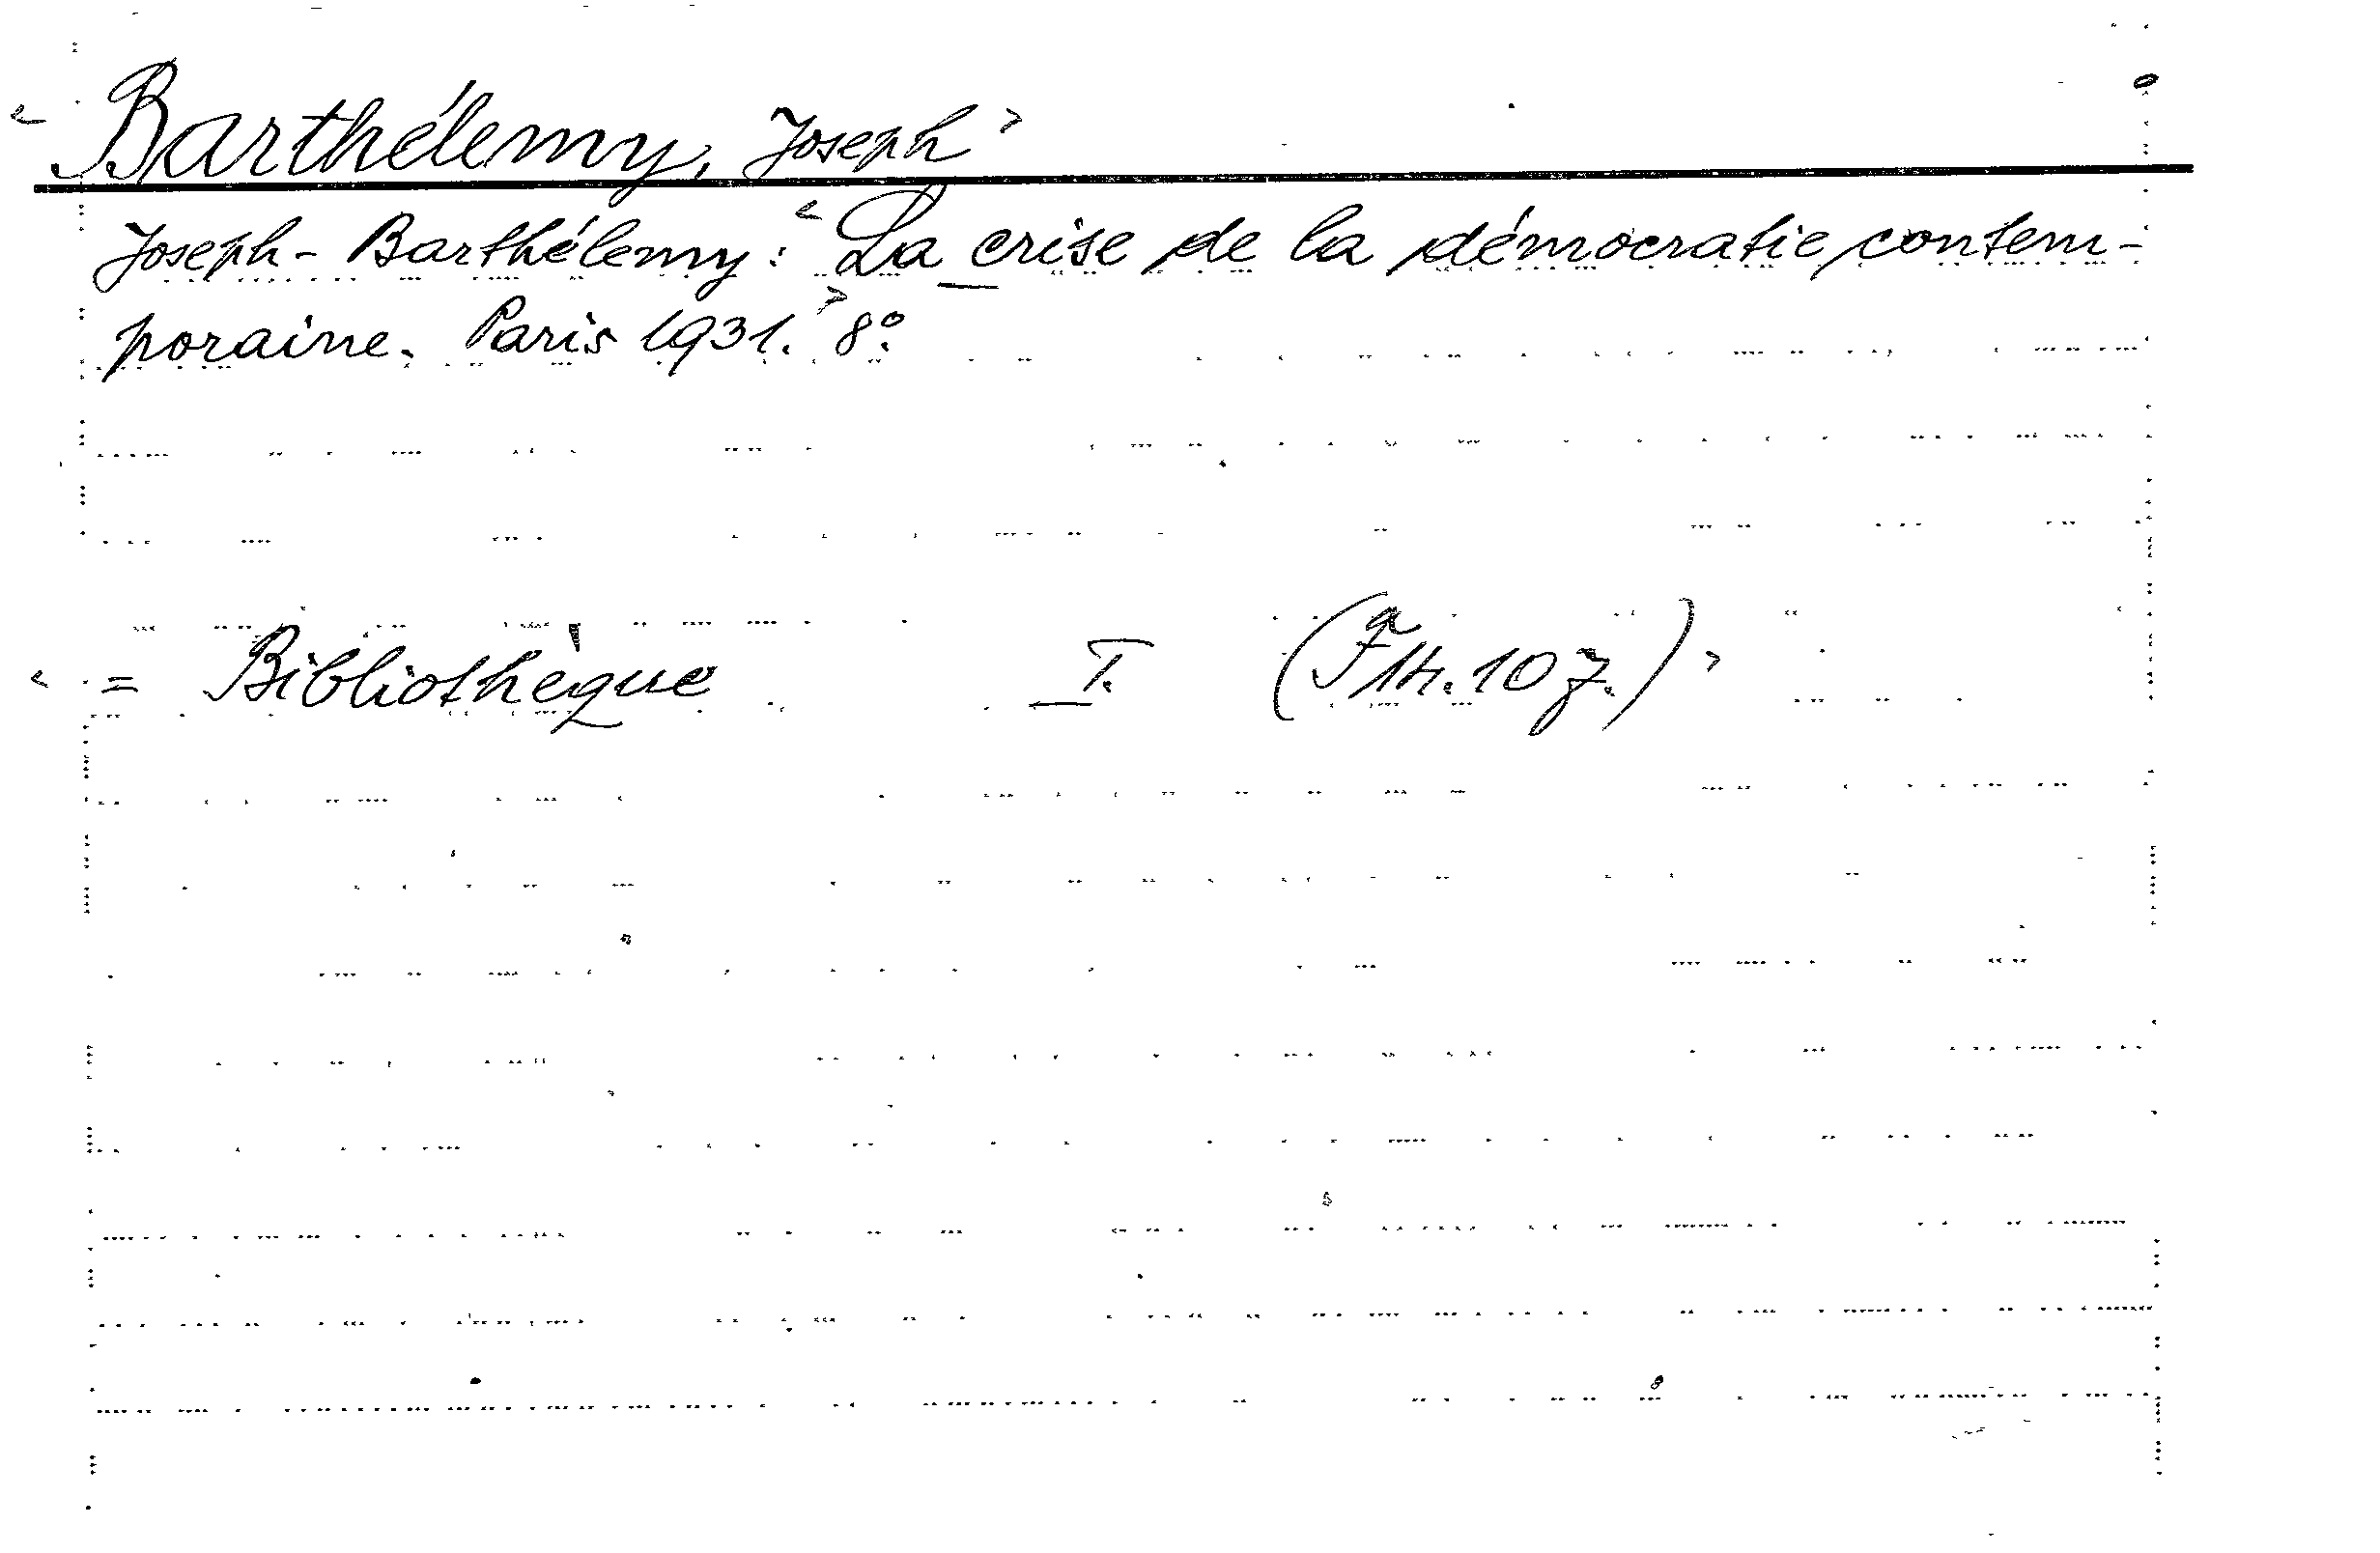 < Barthélemy, Joseph >
Joseph-Barthélemy: < La crise de la démocratie contem-
poraine. Paris 1931. > 8°.
< = Bibliothèque I.